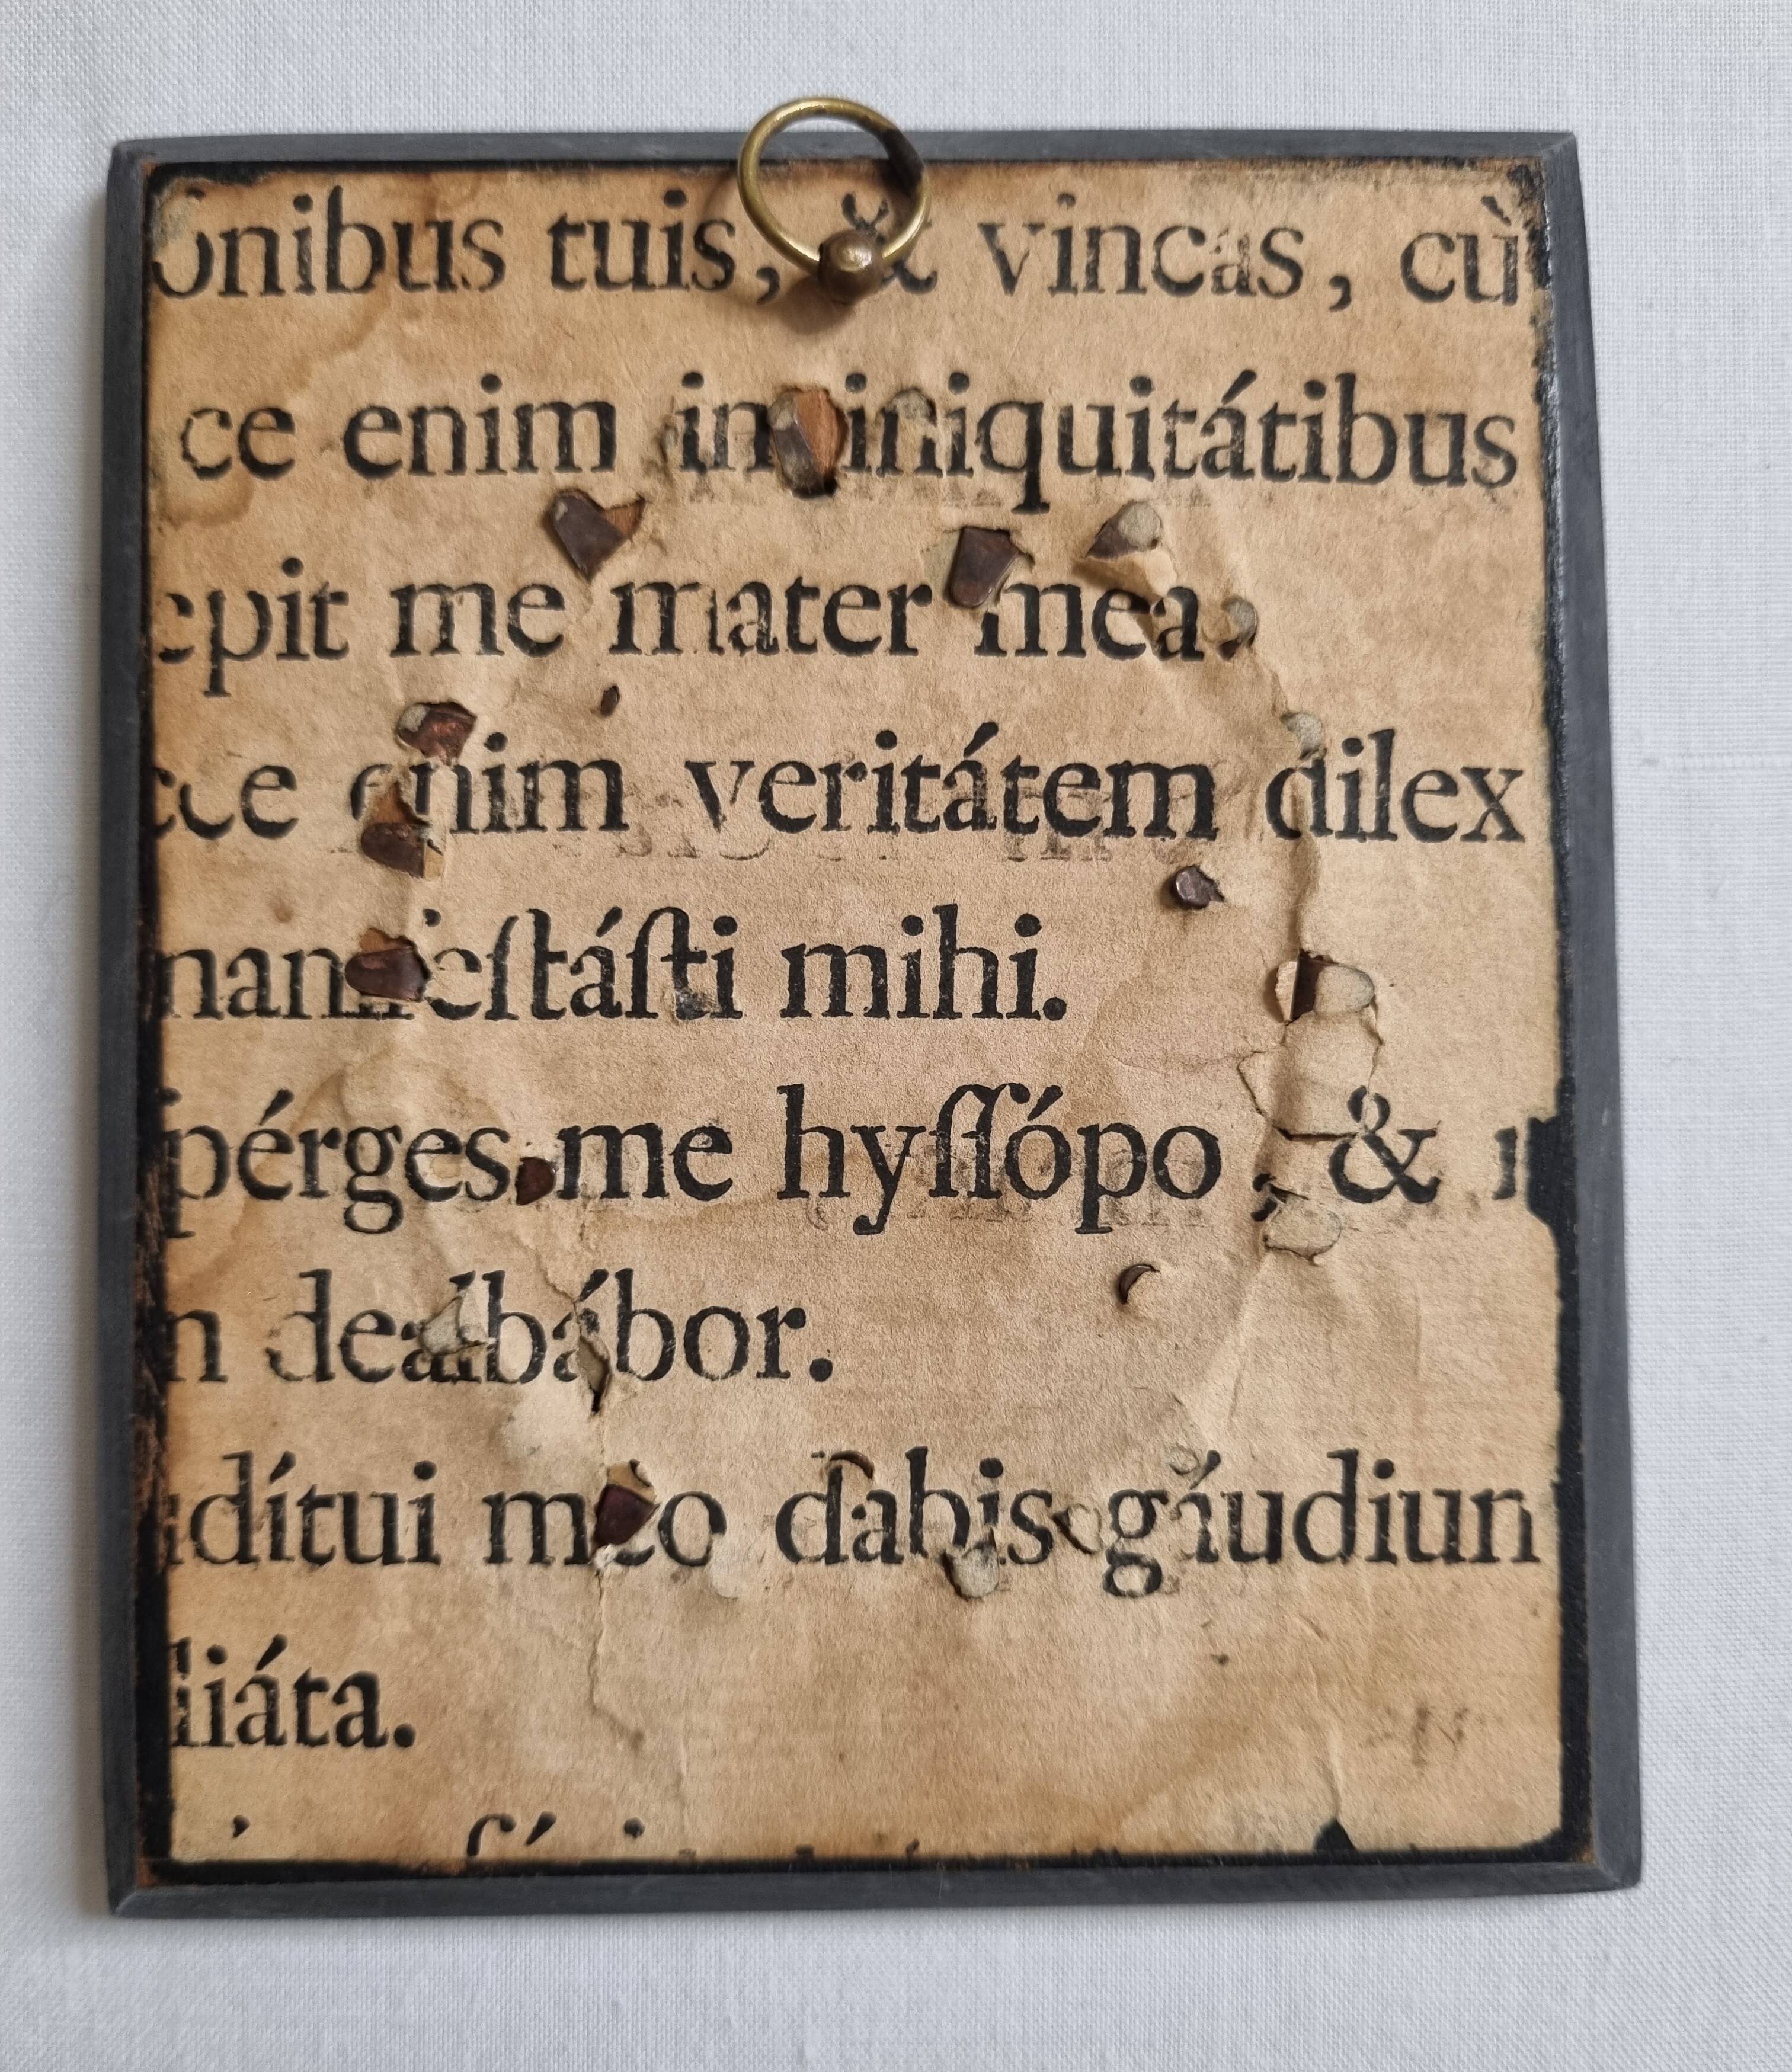 onibus tuis, & vincas, cù
ce enim in iniquitátibus
epit me mater mea.
cce enim veritátem dilex
manifeſtáſti mihi.
pérges me hyſſópo, &
n dealbábor.
dítui meo dabis gáudium
liáta.